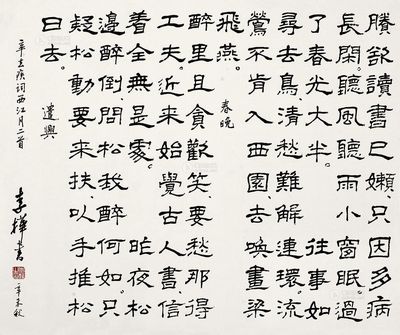 賸欲讀書已嬾，只因多病
長閑。聽風聽雨小窗眠。過
了春光大半。 往事如
尋去鳥，清愁難解連環。流
鶯不肯入西園，去喚畫梁
飛燕。 春晚
醉里且貪歡笑，要愁那得
工夫。近来始覺古人書，信
着全無是處。 昨夜松
邊醉倒，問松我醉何如。只
疑松動要来扶，以手推松
曰去。 遣興
辛弃疾詞西江月二首
樺書
辛未秋